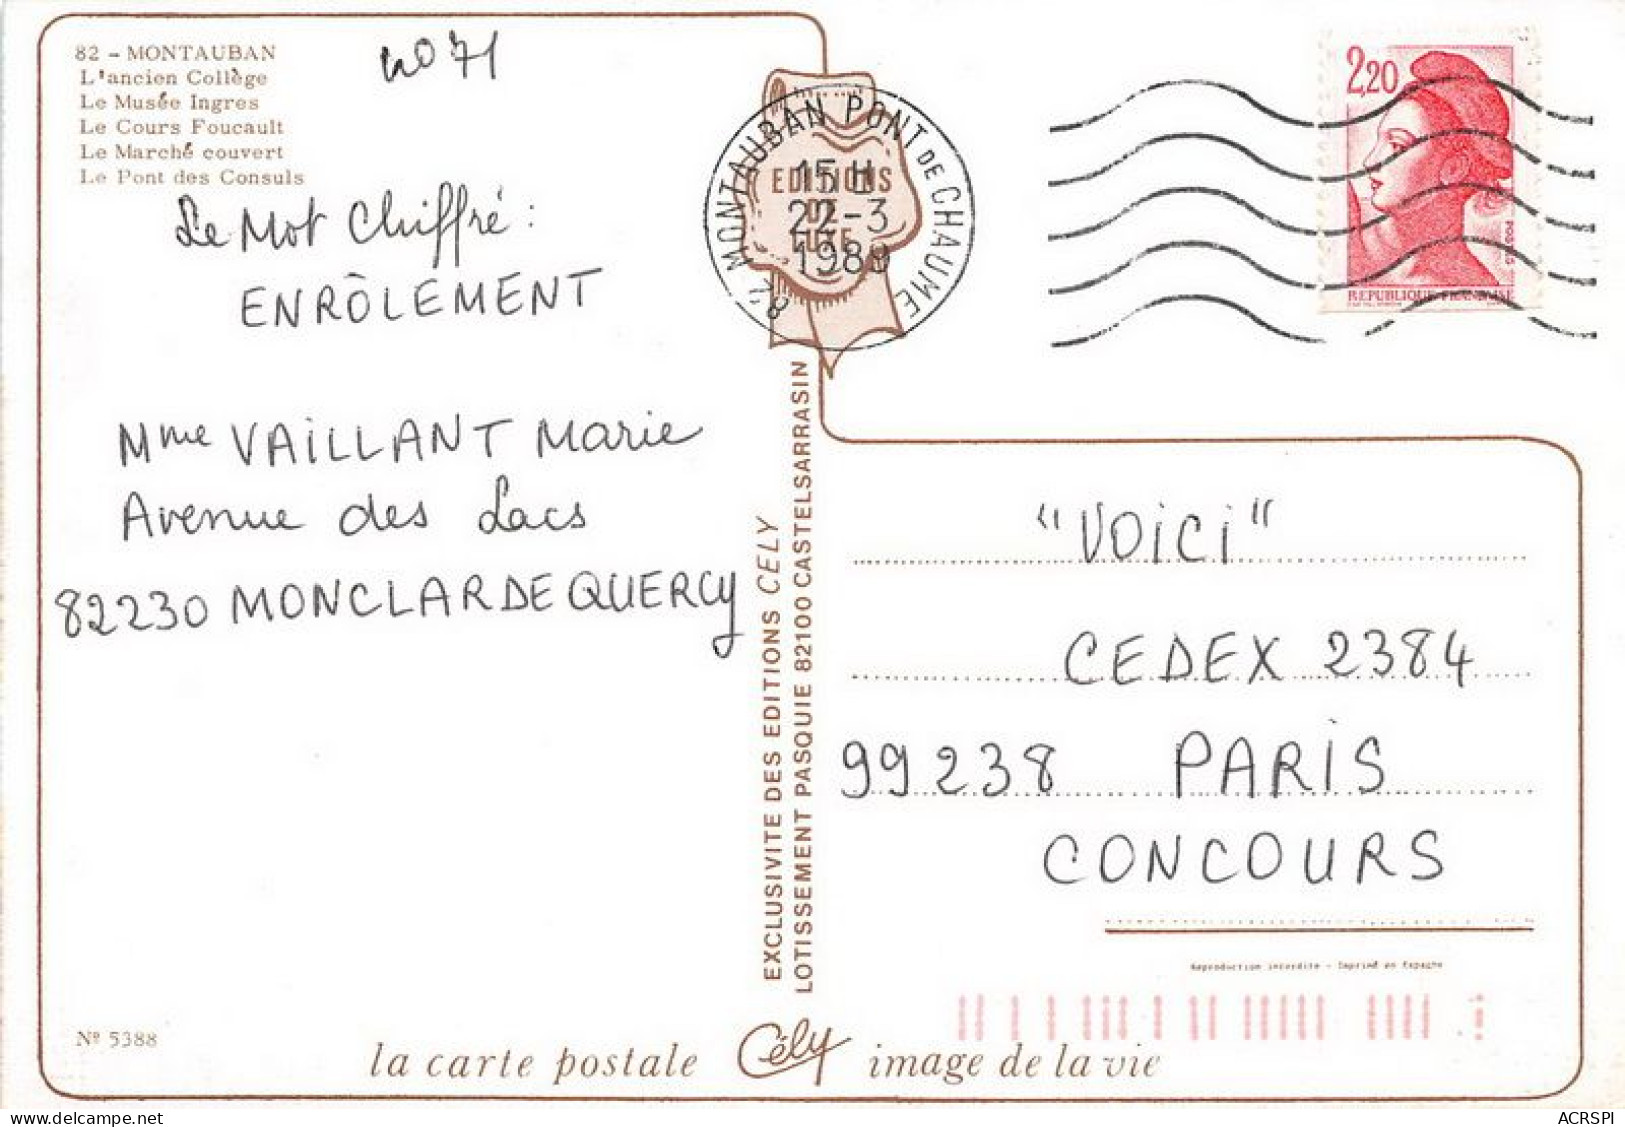 82 - MONTAUBAN
L'ancien Collège
Le Musée Ingres
Le Cours Foucault
Le Marché couvert
Le Pont des Consuls
no 71
Le Mot Chiffré :
ENRÔLEMENT
Mme VAILLANT Marie
Avenue des Lacs
82230 MONCLAR DE QUERCY
82 MONTAUBAN PONT DE CHAUME
15 H
22-3
1989
EDITIONS
DE
LUXE
2,20
POSTES
REPUBLIQUE FRANÇAISE
EXCLUSIVITE DES EDITIONS CELY
LOTISSEMENT PASQUIE 82100 CASTELSARRASIN
"VOICI"
CEDEX 2384
99238 PARIS
CONCOURS
Reproduction interdite - Imprimé en Espagne
Nº 5388
la carte postale Cély image de la vie
ACRSPI